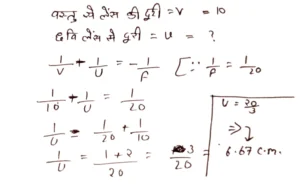 वस्तु से लेंस की दूरी = V = 10
छवि लेंस से दूरी = u = ?
1/V + 1/u = -1/f [∵ 1/f = 1/20
1/10 + 1/u = 1/20
1/u = 1/20 + 1/10
1/u = (1+2)/20 = 3/20 =
u = 20/3
⇒
6.67 C.M.